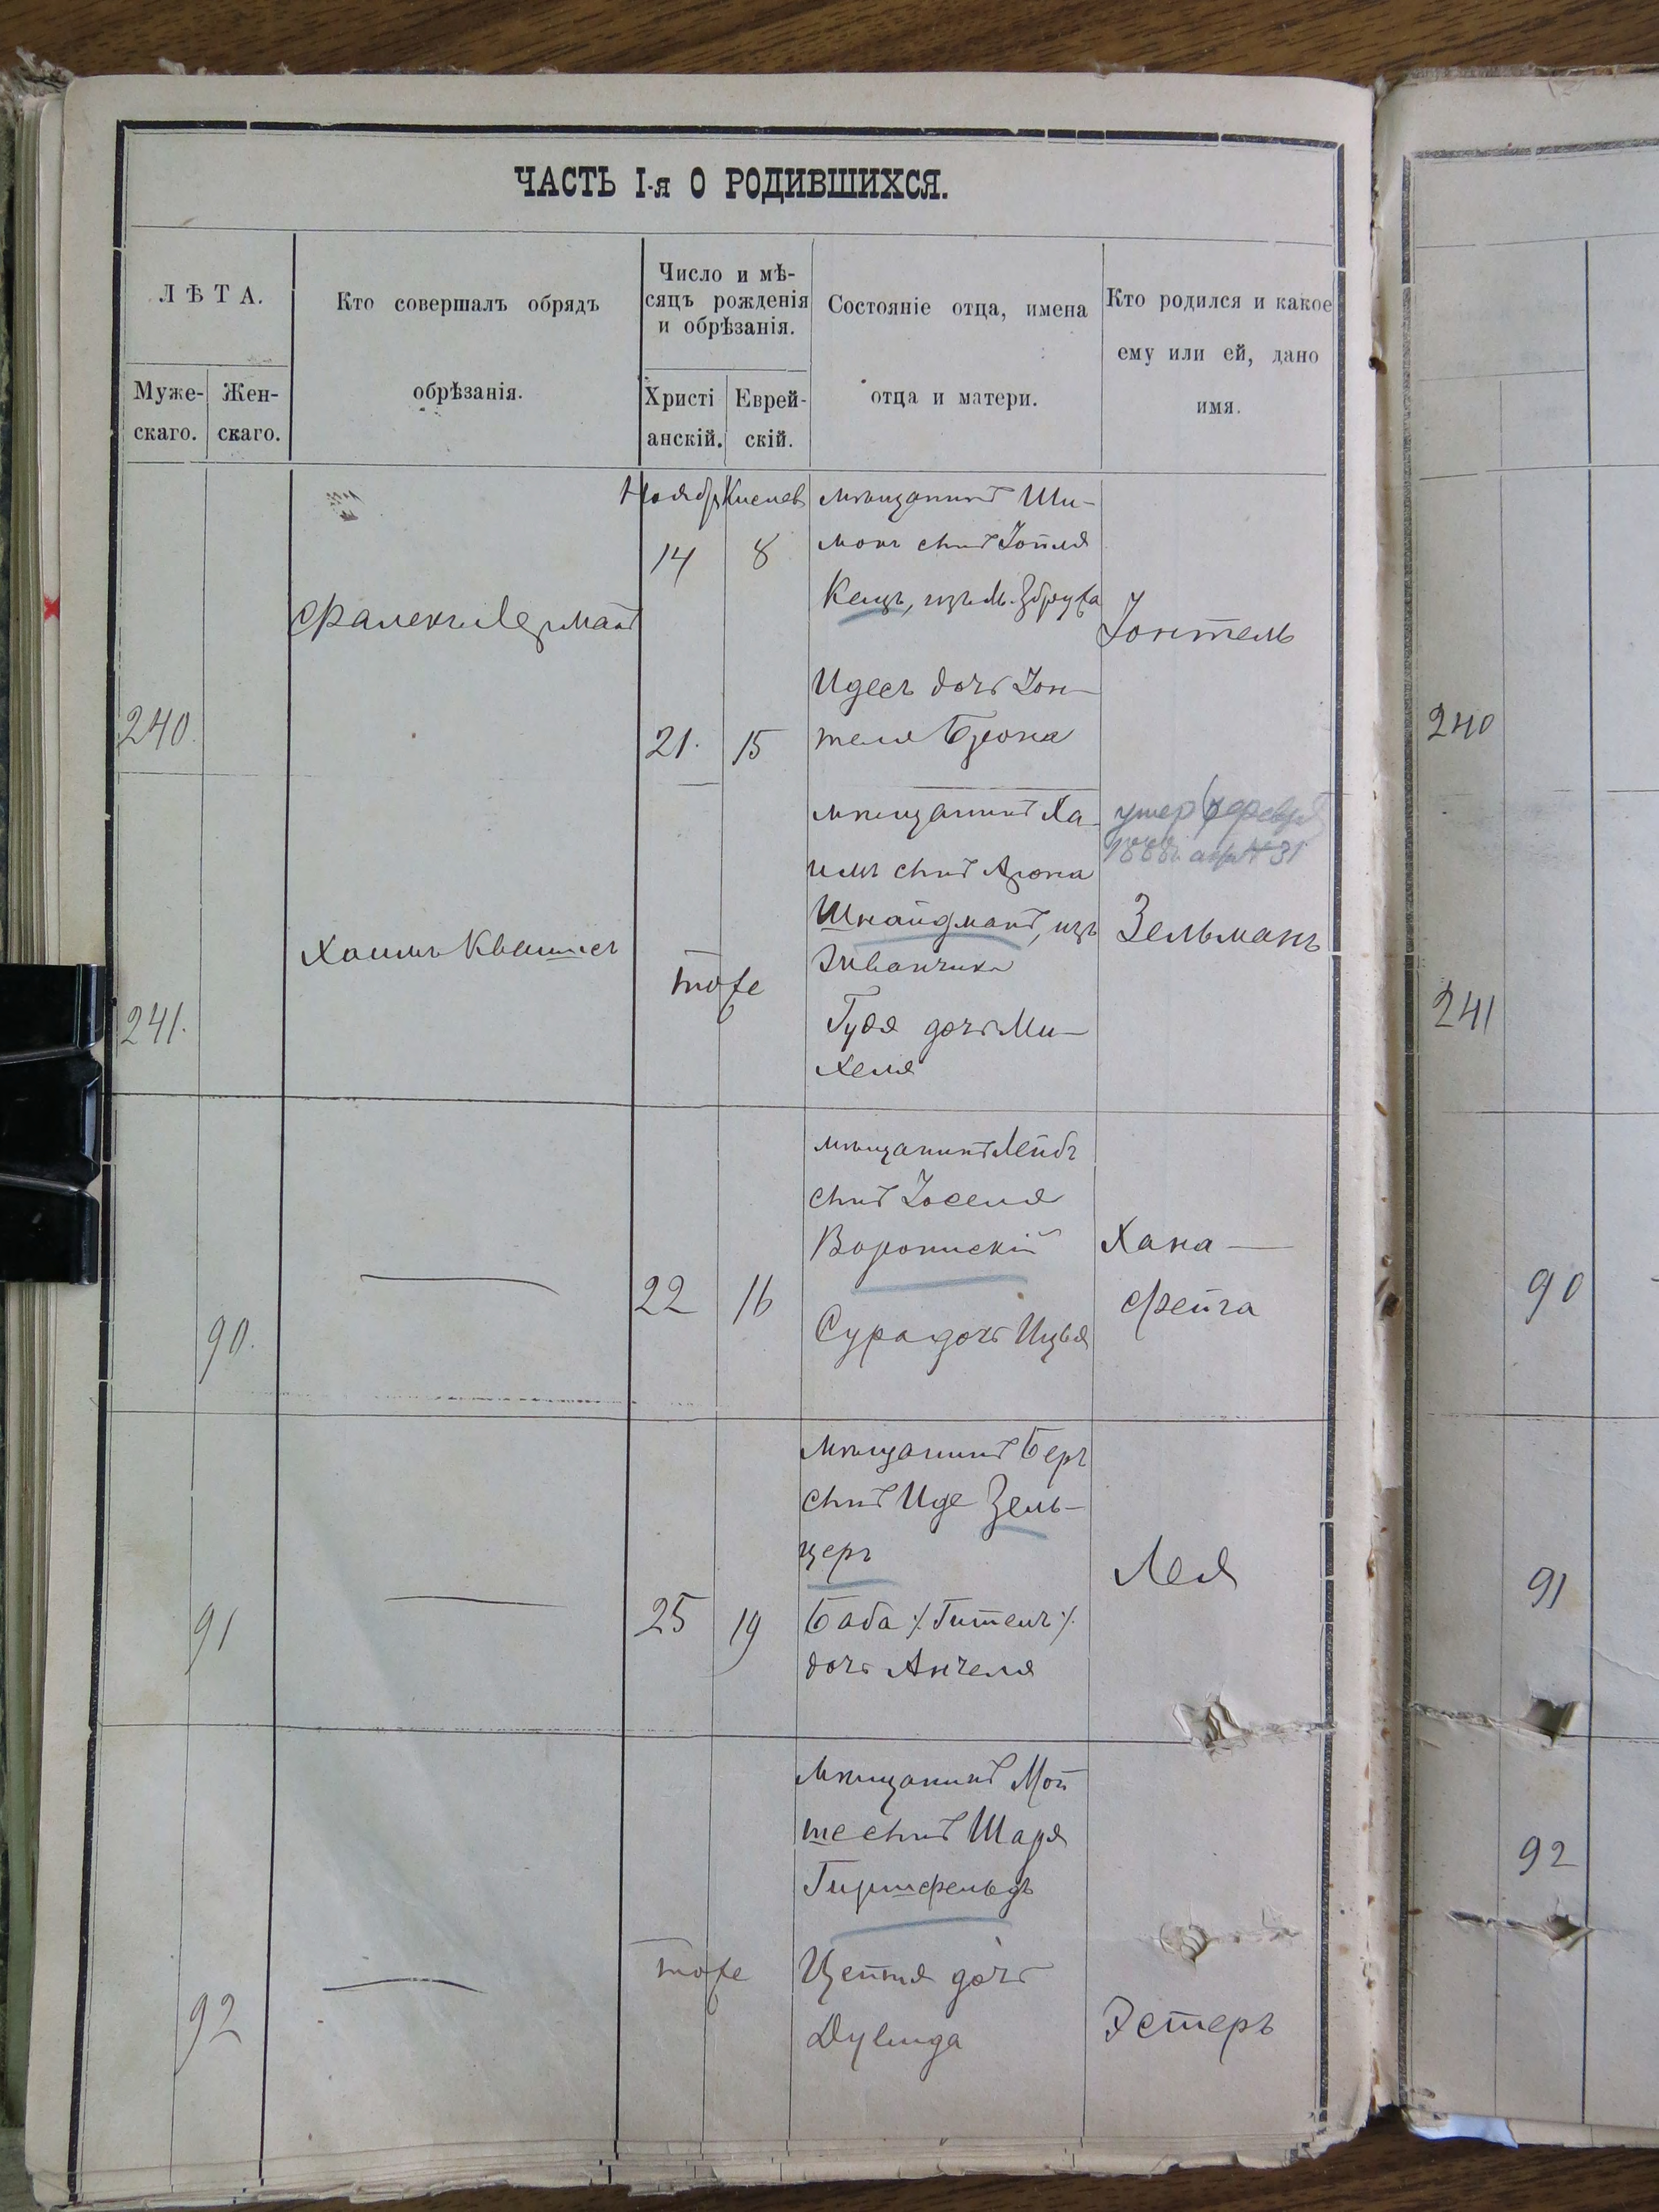 ЧАСТЬ I-я О РОДИВШИХСЯ.
ЛѢТА.
Муже-
скаго.
Жен-
скаго.
Кто совершалъ обрядъ
обрѣзанія.
Число и мѣ-
сяцъ рожденія
и обрѣзанія.
Христі
анскій.
Еврей-
скій.
Состояніе отца, имена
отца и матери.
Кто родился и какое
ему или ей, дано
имя.
240.
Фалекъ Лерманъ
Ноябр Кислев
14 8
21. 15
мѣщанинъ Ши-
монъ сынъ Іойля
Кацъ, изъ м.
Идесъ дочь Іон-
теля Арона
Іонтель
240
241.
Хаимъ
тоже
мѣщанинъ Ха-
имъ сынъ Арона
Шнайдманъ, изъ
Жванчика
Гудя дочь Ми-
хеля
умер
Зельманъ
241
90.
22 16
мѣщанинъ Лейбъ
сынъ Іоселя
Сура дочь Ицья
Хана —
Фейга
90
91
25 19
мѣщанинъ Беръ
сынъ Иде Зель-
церъ
Баба /. Гитель /.
дочь Анчеля
Лея
91
92
тоже
мѣщанинъ Мой
ше сынъ Шаря
Гиршфельдъ
Цейтя дочь
Дувида
Эстеръ
92